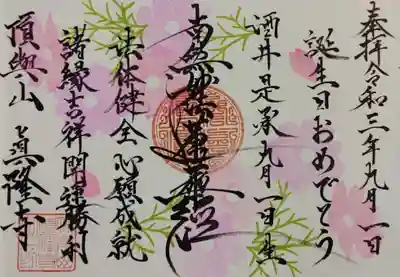 奉拝令和三年九月一日
誕生日おめでとう
酒井是承九月一日生
南無妙法蓮華経
法体健全心願成就
諸縁吉祥開運勝利
頂興山 真隆寺